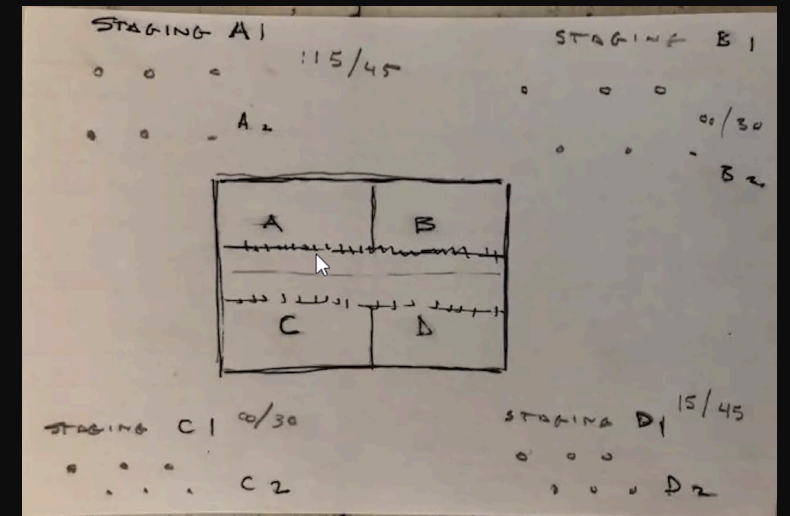 STAGING A1
:15/45
A2
STAGING B1
00/30
B2
A
B
C
D
STAGING C1
00/30
C2
STAGING D1
15/45
D2